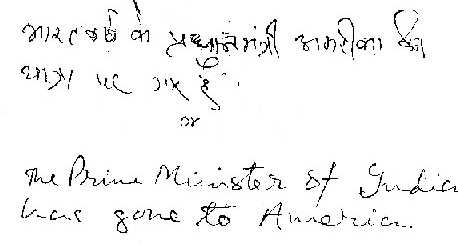 भारतवर्ष के प्रधानमंत्री अमरीका की
यात्रा पर गए हैं।
The Prime Minister of India
has gone to America.